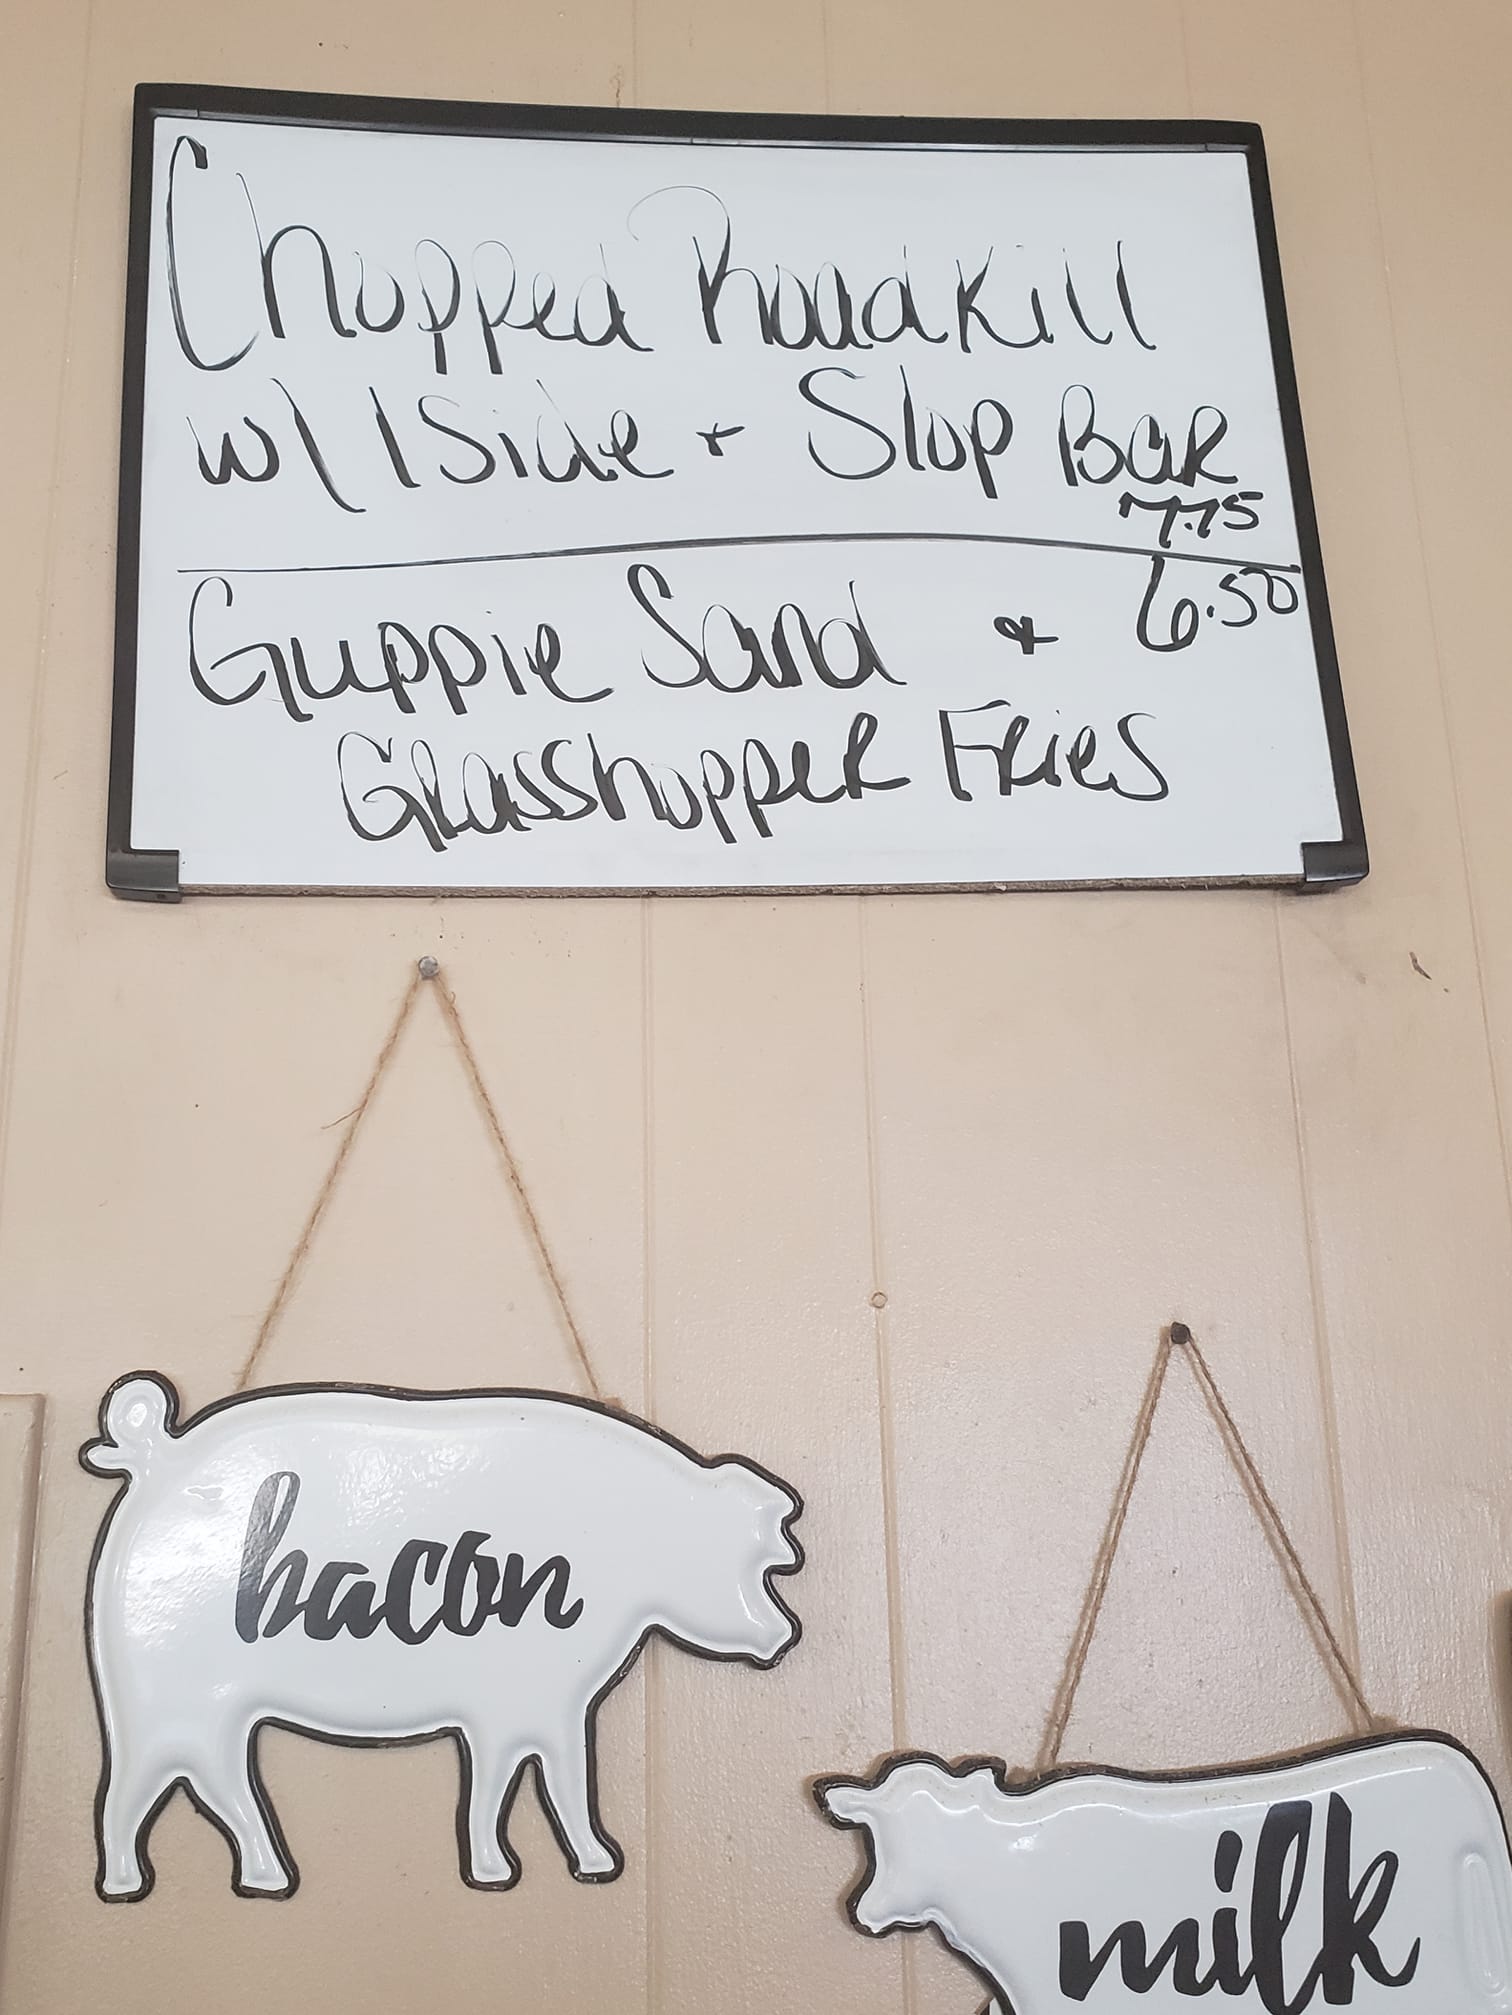 Chopped Roadkill
w/ 1 Side + Slop BaR
7.75
6.50
Guppie Sand &
GRasshoppeR FRies
bacon
milk